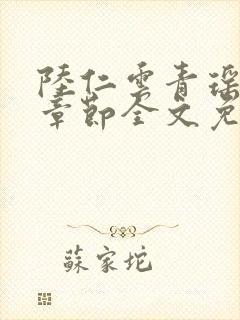 陸仁雲青瑶
章節全文免
蘇家坨